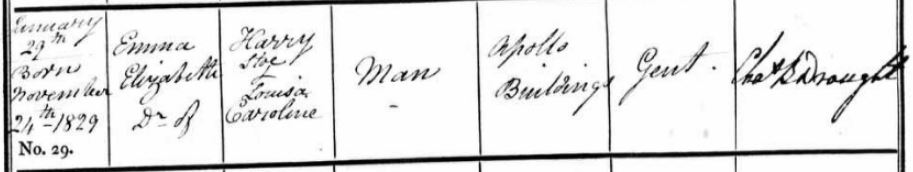 January
29th
Born
November
24th 1829
No. 29.
Emma
Elizabeth
Dr of
Harry
&
Louisa
Caroline
Man
Apollo
Buildings
Gent.
Chas B Drought